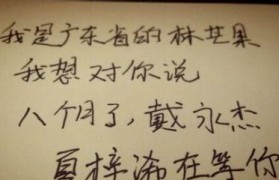 我是广东省的林芸果
我想对你说
八个月了,戴永杰
夏梓浠在等你